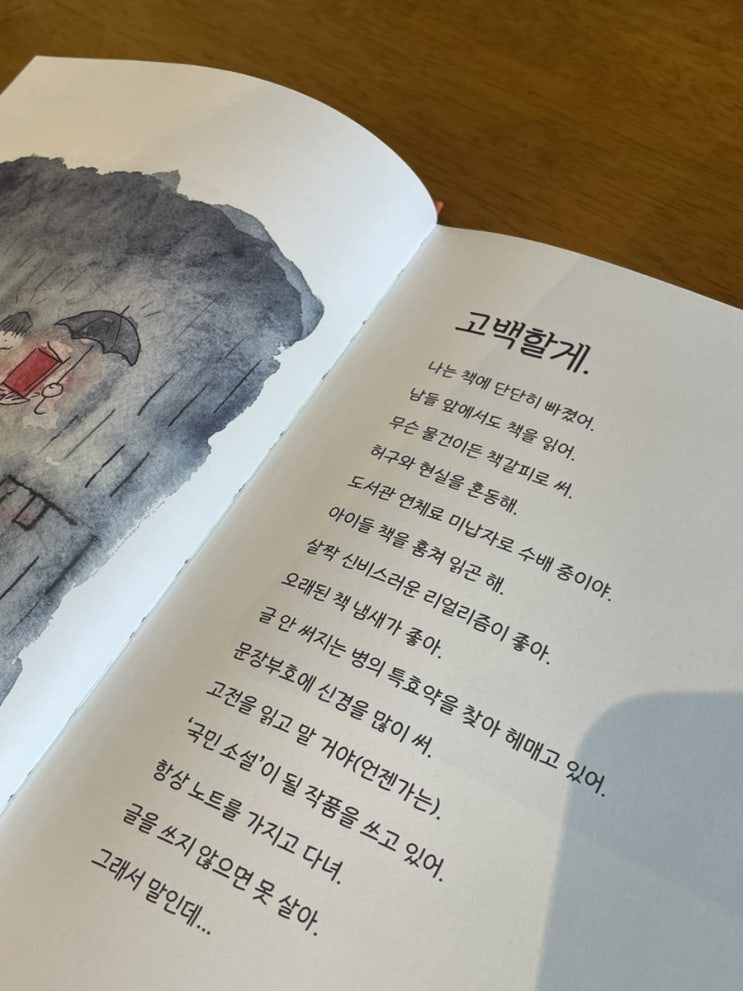 고백할게.
나는 책에 단단히 빠졌어.
남들 앞에서도 책을 읽어.
무슨 물건이든 책갈피로 써.
허구와 현실을 혼동해.
도서관 연체료 미납자로 수배 중이야.
아이들 책을 훔쳐 읽곤 해.
살짝 신비스러운 리얼리즘이 좋아.
오래된 책 냄새가 좋아.
글 안 써지는 병의 특효약을 찾아 헤매고 있어.
문장부호에 신경을 많이 써.
고전을 읽고 말 거야(언젠가는).
‘국민 소설’이 될 작품을 쓰고 있어.
항상 노트를 가지고 다녀.
글을 쓰지 않으면 못 살아.
그래서 말인데...